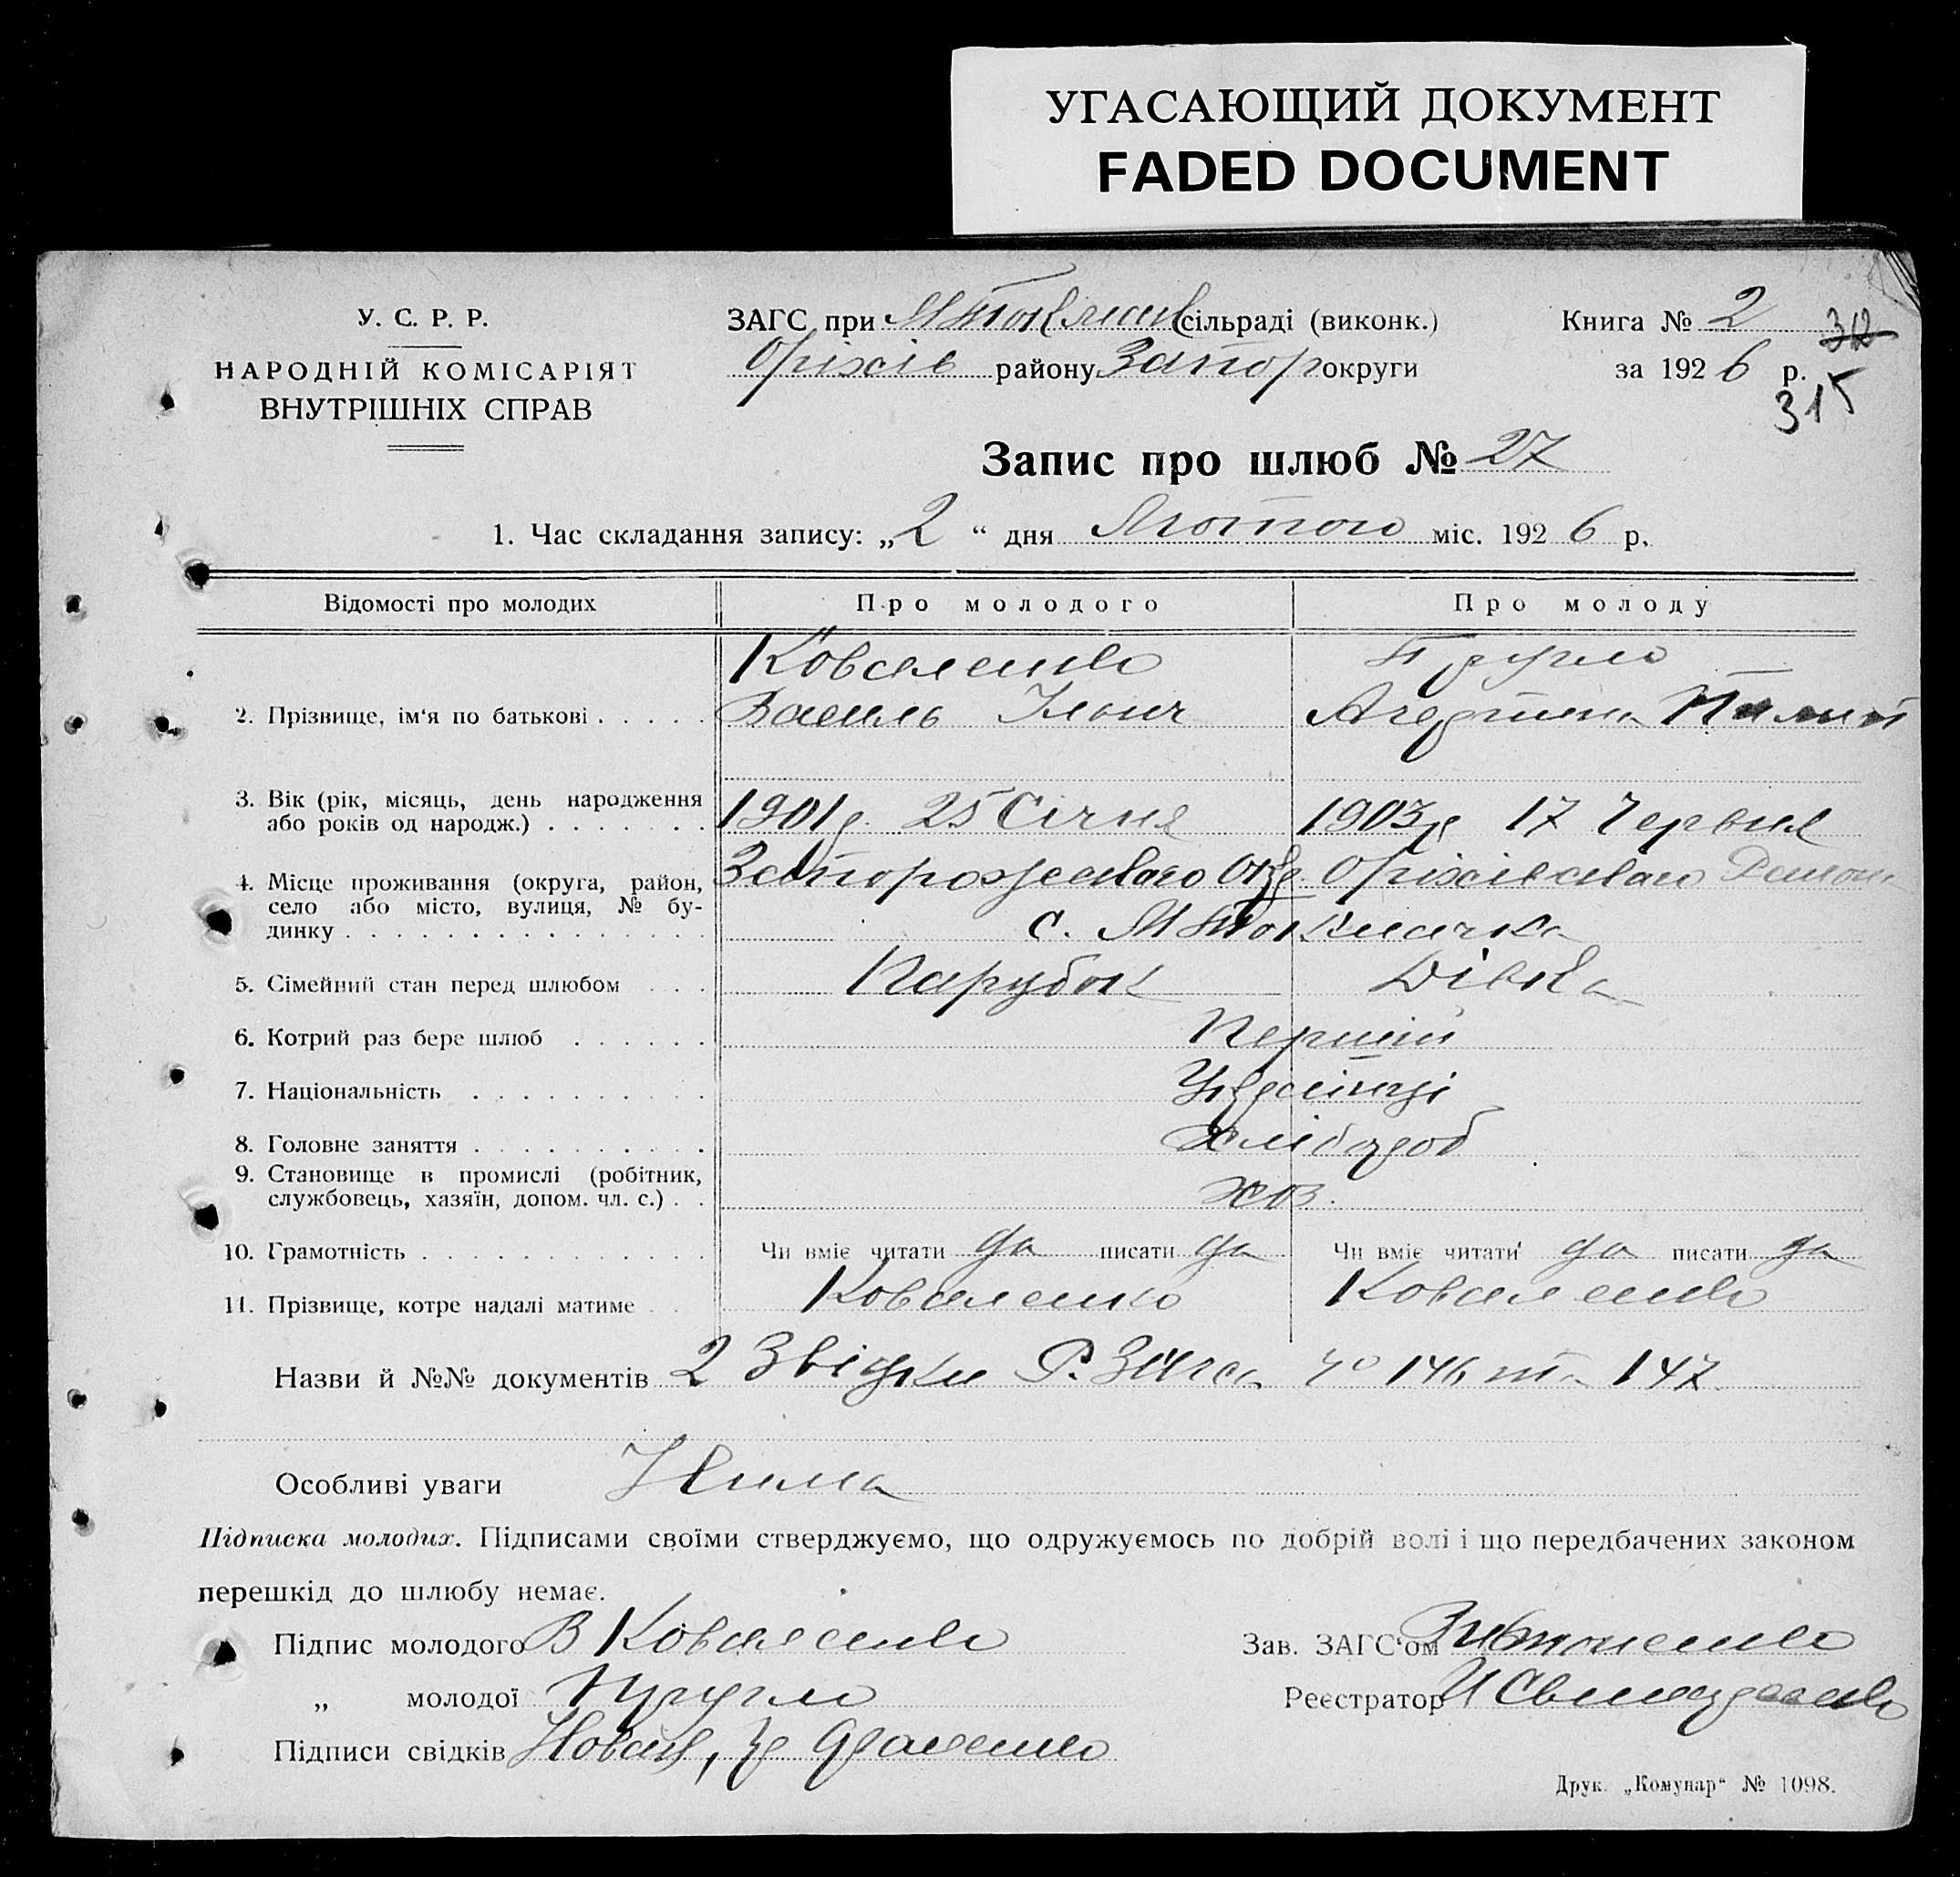 УГАСАЮЩИЙ ДОКУМЕНТ
FADED DOCUMENT
У. С. Р. Р.
НАРОДНІЙ КОМІСАРІЯТ
ВНУТРІШНІХ СПРАВ
ЗАГС при М Токмач сільраді (виконк.)
Оріхів району Запор округи
Книга № 2
32
за 1926 р.
315
Запис про шлюб № 27
1. Час складання запису: „2“ дня Лютого міс. 1926 р.
Відомості про молодих Про молодого Про молоду
Коваленко
2. Прізвище, ім‘я по батькові . . . . . Василь Ільич
3. Вік (рік, місяць, день народження
або років од народж.) . . . . . . . 1901р. 25 Січня 1903р 17 Червня
4. Місце проживання (округа, район, Запорожського Окр. Оріхівського Район
село або місто, вулиця, № бу-
динку . . . . . . . . . . . . . . . с. М Токмачка
5. Сімейний стан перед шлюбом . . . Парубок Дівка
6. Котрий раз бере шлюб . . . . . . Перший
7. Національність . . . . . . . . . . Українці
8. Головне заняття . . . . . . . . . . хлібороб
9. Становище в промислі (робітник,
службовець, хазяїн, допом. чл. с.) . . хоз.
10. Грамотність . . . . . . . . . . . . Чи вміє читати да писати да Чи вміє читати да писати да
11. Прізвище, котре надалі матиме . . Коваленко Коваленко
Назви й №№ документів 2 Звідки Р. Загса № 146 та 147
Особливі уваги Нима
Підписка молодих. Підписами своїми стверджуємо, що одружуємось по добрій волі і що передбачених законом
перешкід до шлюбу немає.
Підпис молодого В Коваленко
Зав. ЗАГС‘ом
„ молодої
Реєстратор
Підписи свідків
Друк. „Комунар“ № 1098.